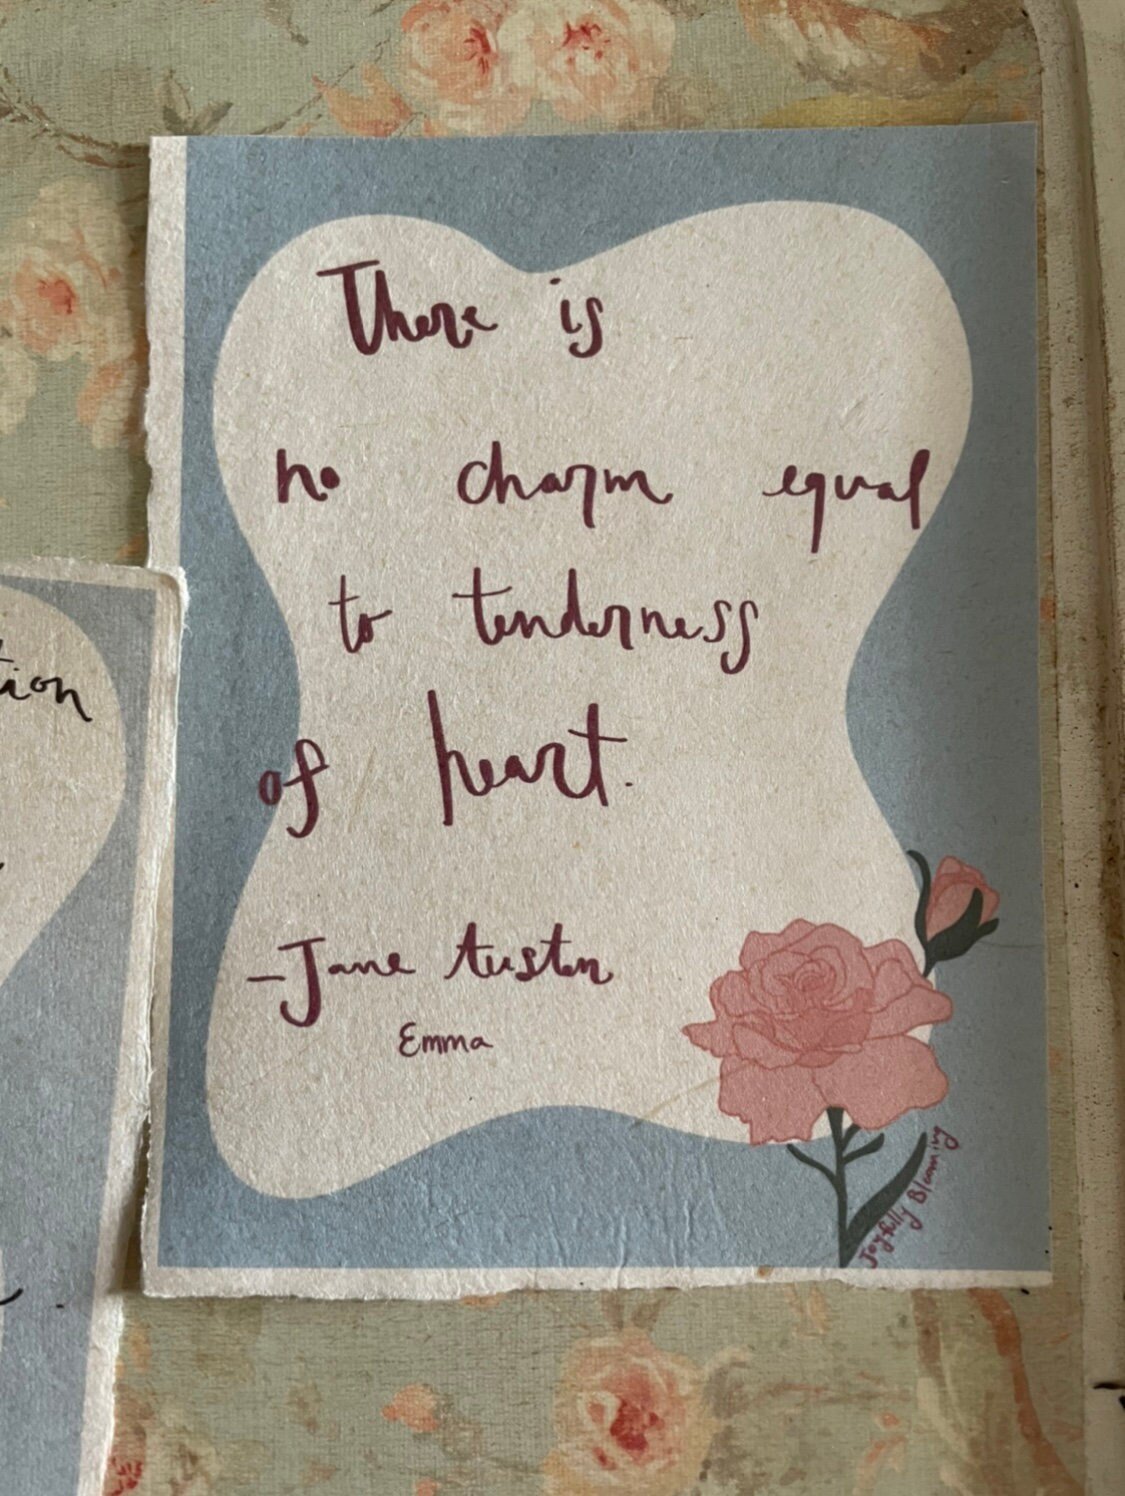 There is
no charm equal
to tenderness
of heart.
-Jane Austen
Emma
Joyfully Blooming
tion